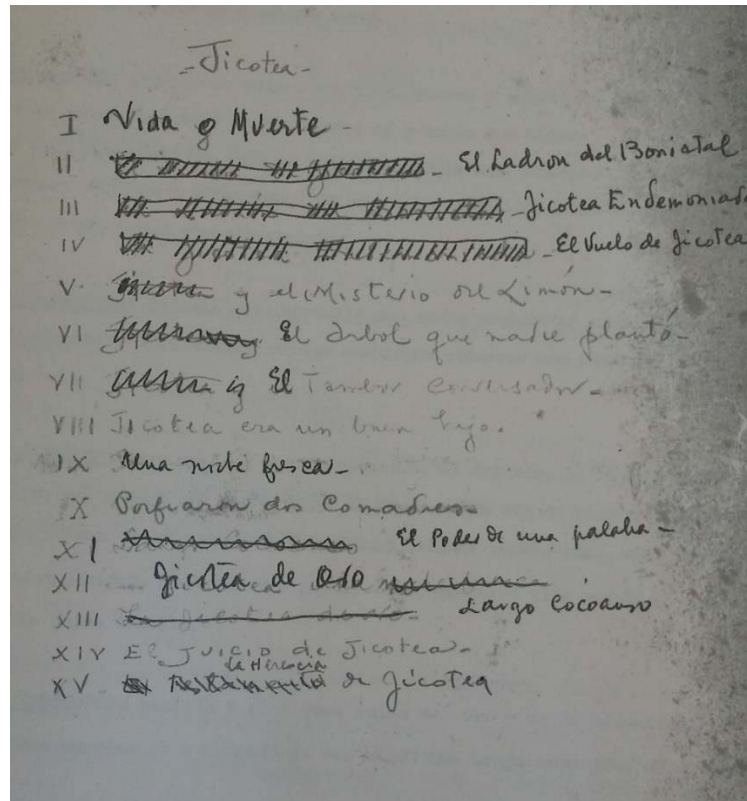 -Jicotea-
I Vida o Muerte -
II El Ladron del Boniatal
III Jicotea Endemoniad
IV El Vuelo de Jicotea
V y el Misterio del Limón -
VI El arbol que nadie plantó -
VII El Tambor
VIII Jicotea era un buen hijo.
IX Una noche fresca -
X Porfiaron dos Comadres
XI El Poder de una palabra -
XII Jicotea de Oro
XIII Largo
XIV El Juicio de Jicotea -
la Herencia
XV de Jicotea